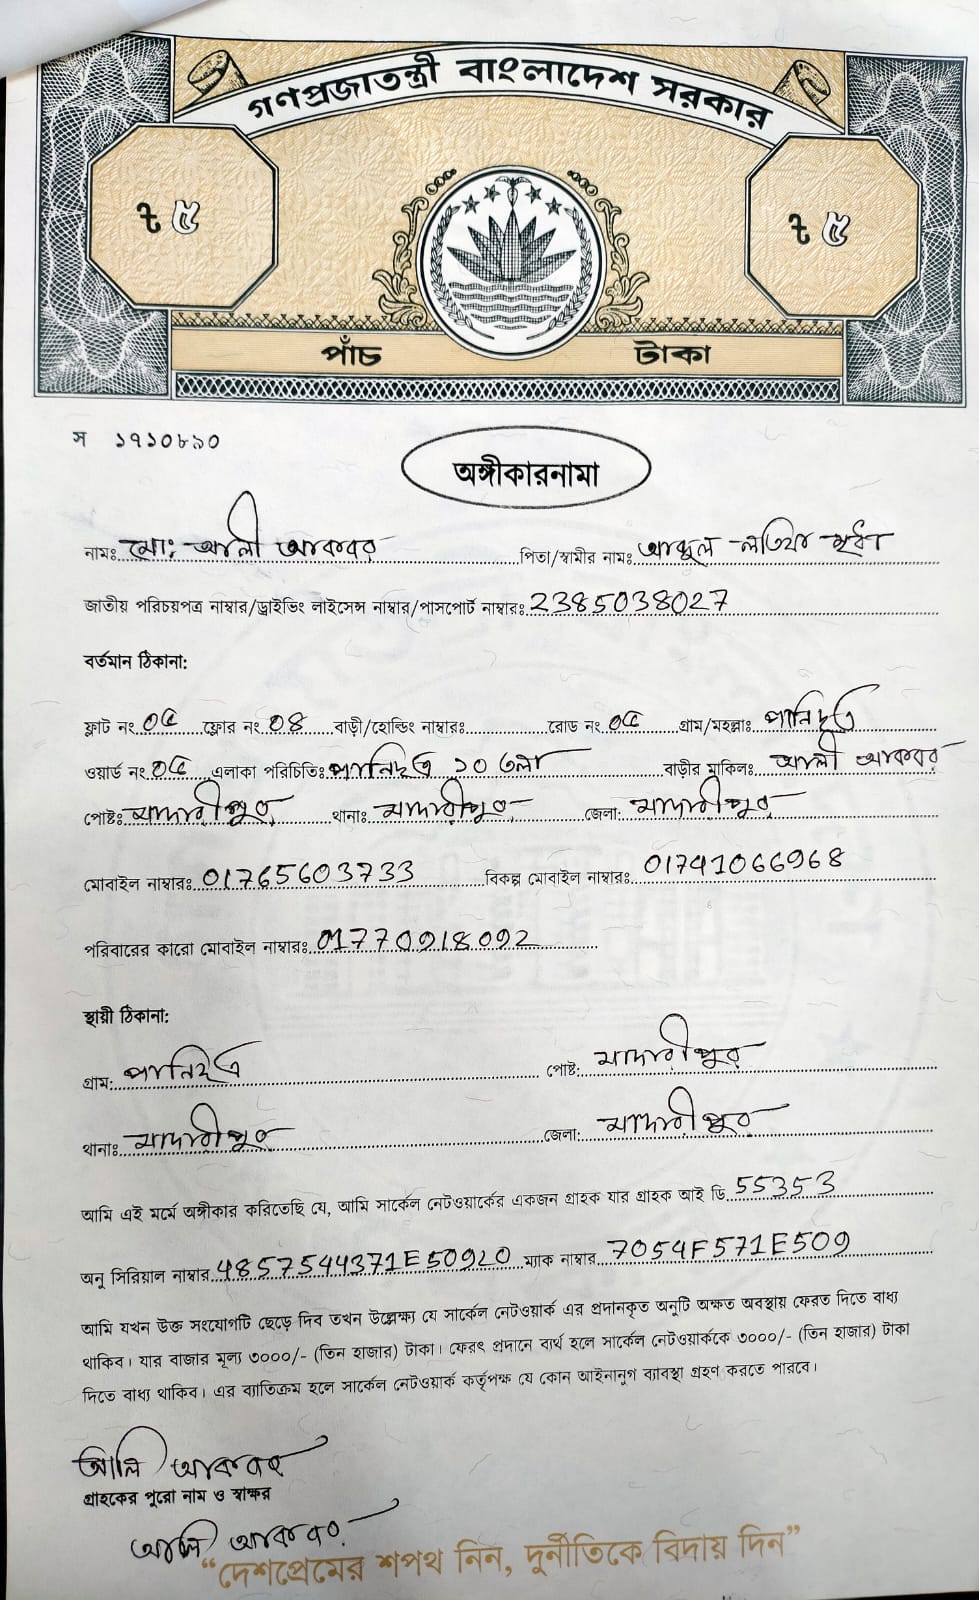 গণপ্রজাতন্ত্রী বাংলাদেশ সরকার
৳ ৫ ৳ ৫
পাঁচ টাকা
স ১৭১০৮৯০
অঙ্গীকারনামা
নামঃ মোঃ আলী আকবর পিতা/স্বামীর নামঃ আব্দুল লতিফ
জাতীয় পরিচয়পত্র নাম্বার/ড্রাইভিং লাইসেন্স নাম্বার/পাসপোর্ট নাম্বারঃ 2385038027
বর্তমান ঠিকানা:
ফ্লাট নং ০৫ ফ্লোর নং ০৪ বাড়ী/হোল্ডিং নাম্বারঃ রোড নং ০৫ গ্রাম/মহল্লাঃ
ওয়ার্ড নং ০৫ এলাকা পরিচিতিঃ ১০ তলা বাড়ীর মালিকঃ আলী আকবর
পোষ্টঃ মাদারীপুর থানাঃ মাদারীপুর জেলা: মাদারীপুর
মোবাইল নাম্বারঃ 01765603733 বিকল্প মোবাইল নাম্বারঃ 01741066968
পরিবারের কারো মোবাইল নাম্বারঃ 01770918092
স্থায়ী ঠিকানা:
গ্রাম: পোষ্ট: মাদারীপুর
থানাঃ মাদারীপুর জেলা: মাদারীপুর
আমি এই মর্মে অঙ্গীকার করিতেছি যে, আমি সার্কেল নেটওয়ার্কের একজন গ্রাহক যার গ্রাহক আই ডি 55353
অনু সিরিয়াল নাম্বার 48575444371E50920 ম্যাক নাম্বার 7054F571E509
আমি যখন উক্ত সংযোগটি ছেড়ে দিব তখন উল্লেক্ষ্য যে সার্কেল নেটওয়ার্ক এর প্রদানকৃত অনুটি অক্ষত অবস্থায় ফেরত দিতে বাধ্য
থাকিব। যার বাজার মূল্য ৩০০০/- (তিন হাজার) টাকা। ফেরৎ প্রদানে ব্যর্থ হলে সার্কেল নেটওয়ার্ককে ৩০০০/- (তিন হাজার) টাকা
দিতে বাধ্য থাকিব। এর ব্যাতিক্রম হলে সার্কেল নেটওয়ার্ক কর্তৃপক্ষ যে কোন আইনানুগ ব্যাবস্থা গ্রহণ করতে পারবে।
আলি আকবর
গ্রাহকের পুরো নাম ও স্বাক্ষর
আলি আকবর
“দেশপ্রেমের শপথ নিন, দুর্নীতিকে বিদায় দিন”